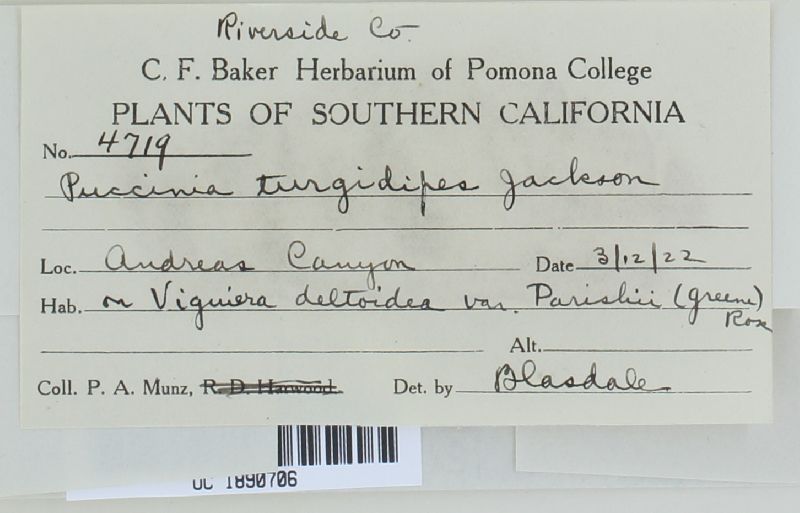 Riverside Co.
C. F. Baker Herbarium of Pomona College
PLANTS OF SOUTHERN CALIFORNIA
No. 4719
Puccinia turgidipes Jackson
Loc. Andreas Canyon Date 3/12/22
Hab. on Viguiera deltoidea var. Parishii (Greene)
Rose
Alt.
Coll. P. A. Munz, R. D. Harwood. Det. by Blasdale
UC 1890706